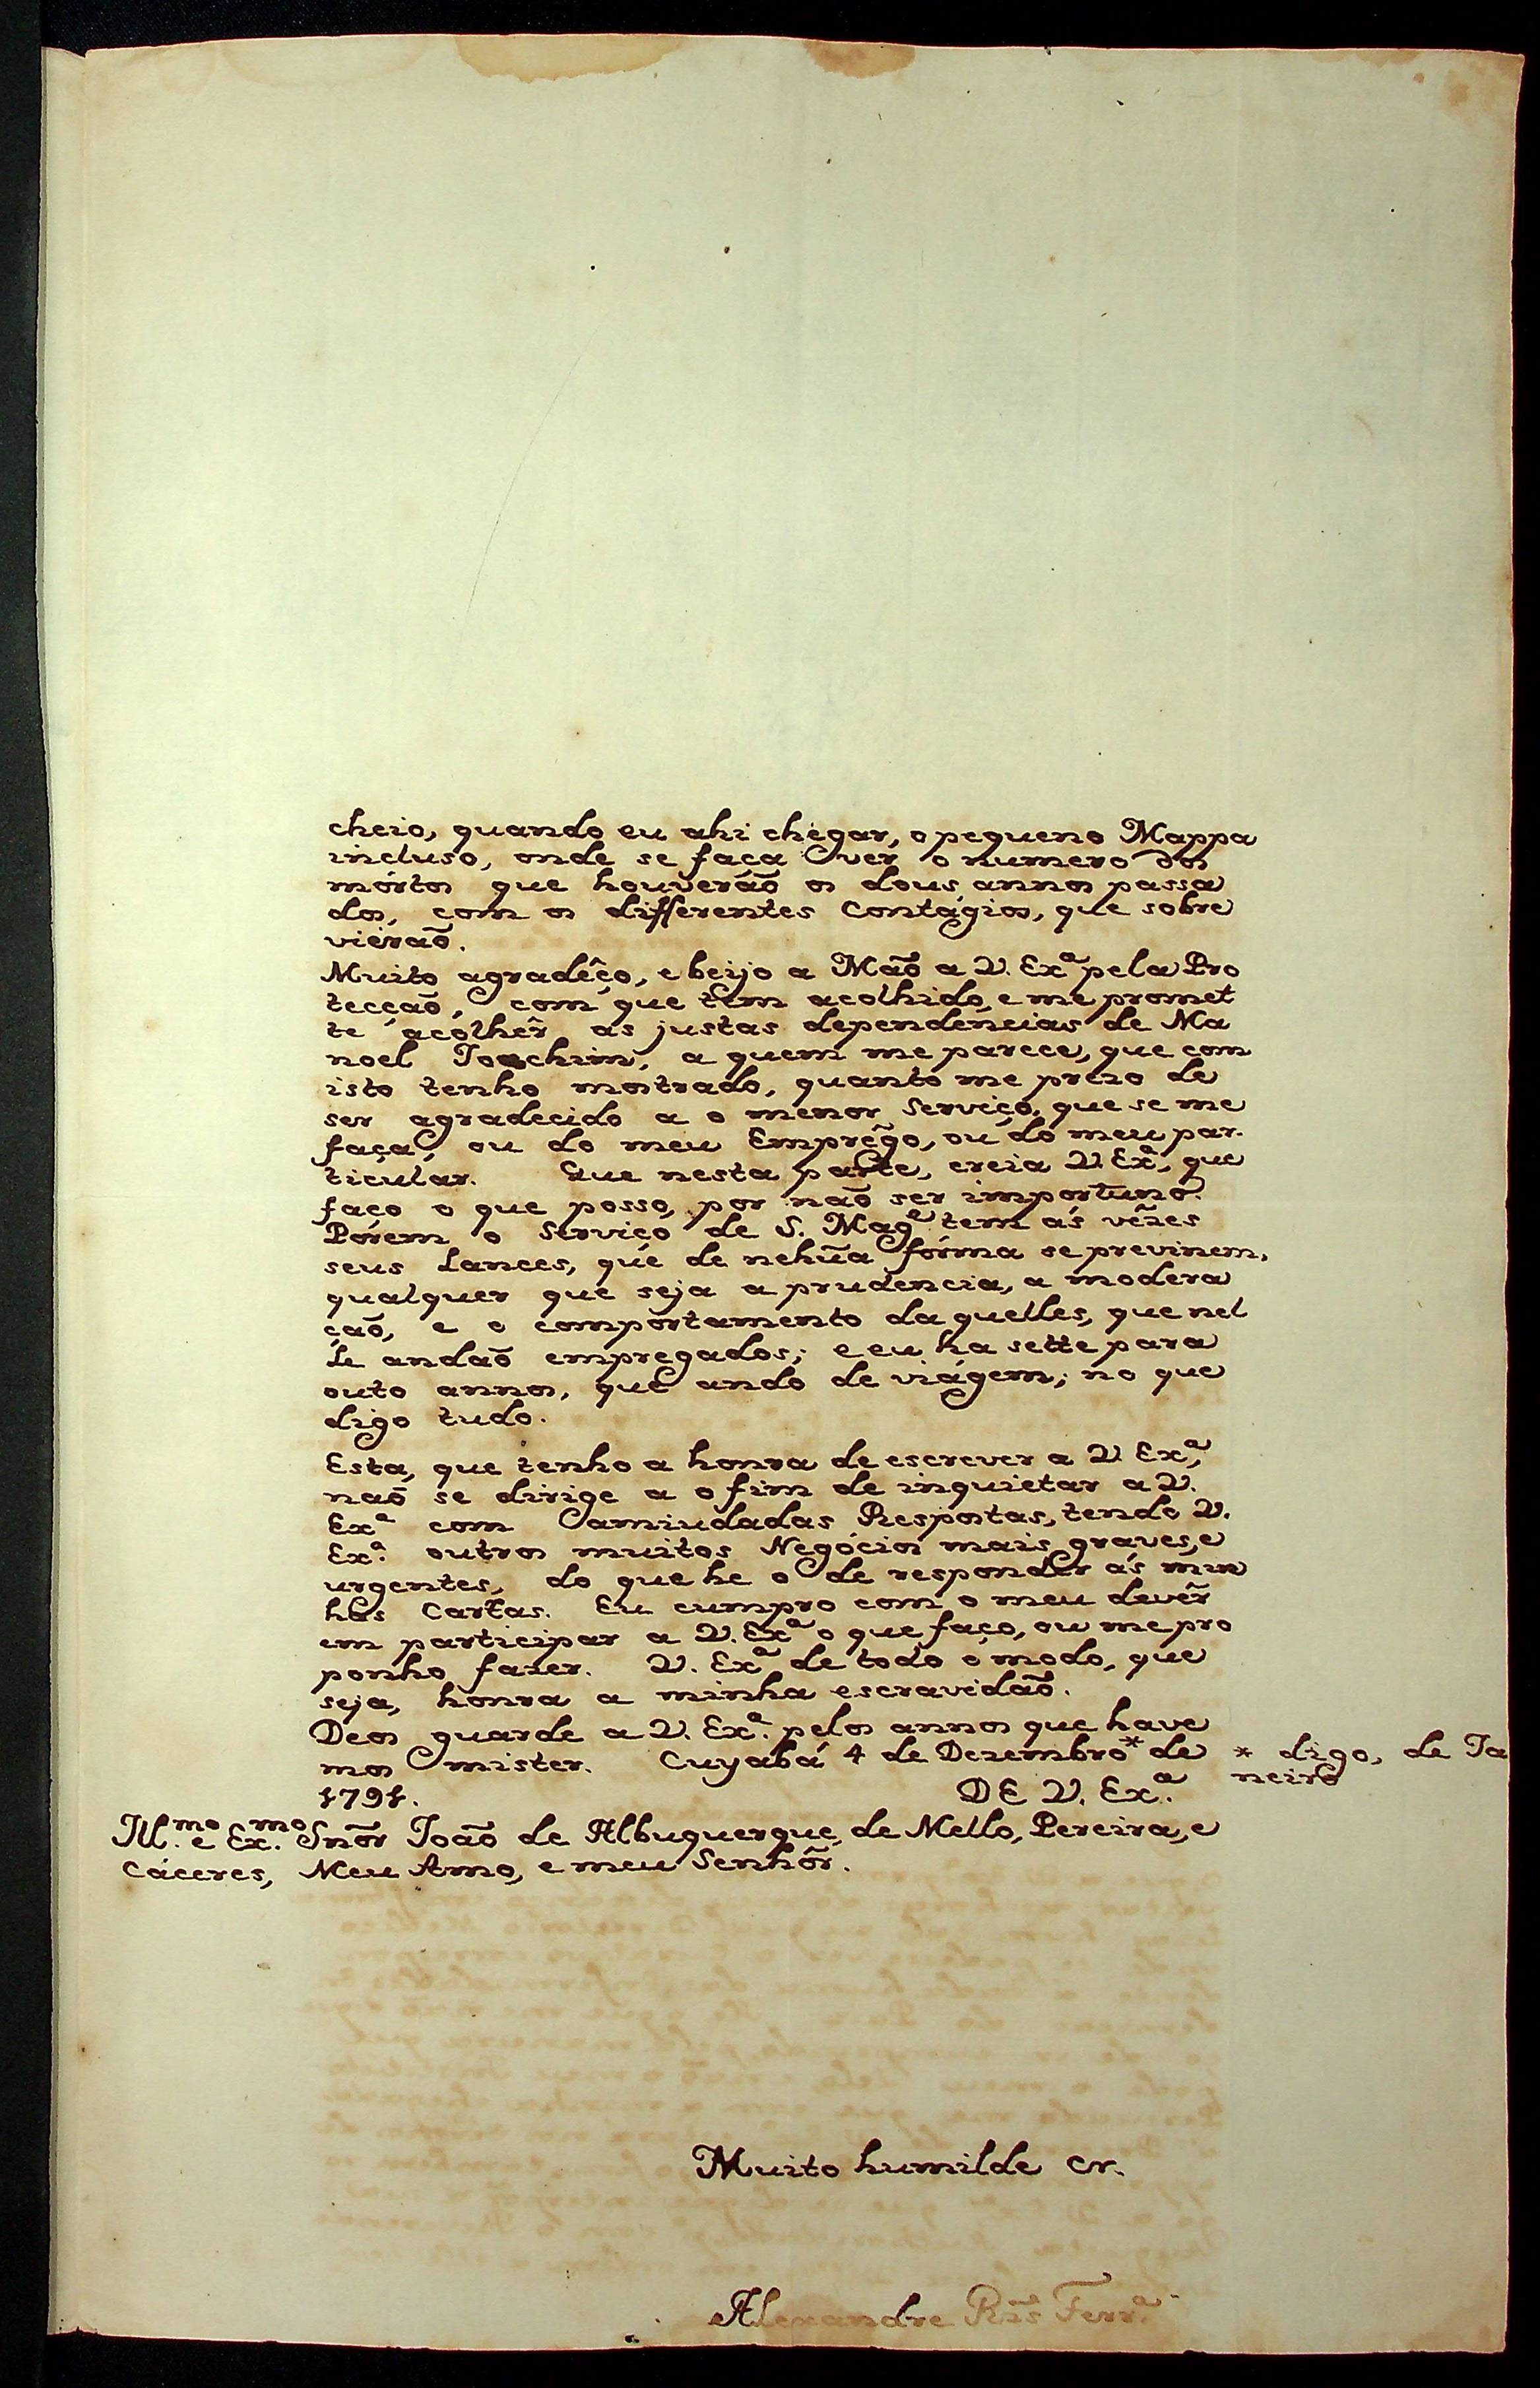 cheio, quando eu ahi chegar, o pequeno Mappa
incluso, onde se faça ver o numero dos
mórtos que houverão os dous annos passa
dos, com os differentes Contágios, que sobre
vierão.
Muito agradêço, e beijo a Mão a V. Exª pela Pro
tecção, com que tem acolhido, e me promet
te acolhêr as justas dependências de Ma
noel Joachim, a quem me parece, que com
isto tenho mostrado, quanto me prezo de
ser agradecido a o menor Serviço, que se me
faça, ou do meu Emprêgo, ou do meu par
ticular. Que nesta parte, creia V. Exª, que
faço o que posso, por não ser importuno.
Pórem o Serviço de S. Magᵉ tem ás vêzes
seus Lances, que de nehũa fórma se previnem,
qualquer que seja a prudencia, a modera
ção, e o comportamento daquelles, que nel
le andão empregados; e eu ha sette para
outo annos, que ando de viágem; no que
digo tudo.
Esta, que tenho a honra de escrever a V. Exª,
não se dirige a o fim de inquietar a V.
Exª com amiudadas Respostas, tendo V.
Exª outros muitos Negócios mais graves, e
urgentes, do que he o de responder ás min
has Cartas. Eu cumpro com o meu devêr
em participar a V. Exª o que faço, ou me pro
ponho fazer. V. Exª de todo o modo, que
seja, honra a minha escravidão.
Deos guarde a V. Exª pelos annos que have
mos mister. Cuyabá 4 de Dezembro* de
* digo, de Ja
neiro
1791.
DE V. Exª
Ill.ᵐᵒ e Ex.ᵐᵒ Snõr João de Albuquerque, de Mello, Pereira, e
Cáceres, Meu Amo, e meu Senhôr.
Muito humilde Cr.
Alexandre Rĩs Ferrª